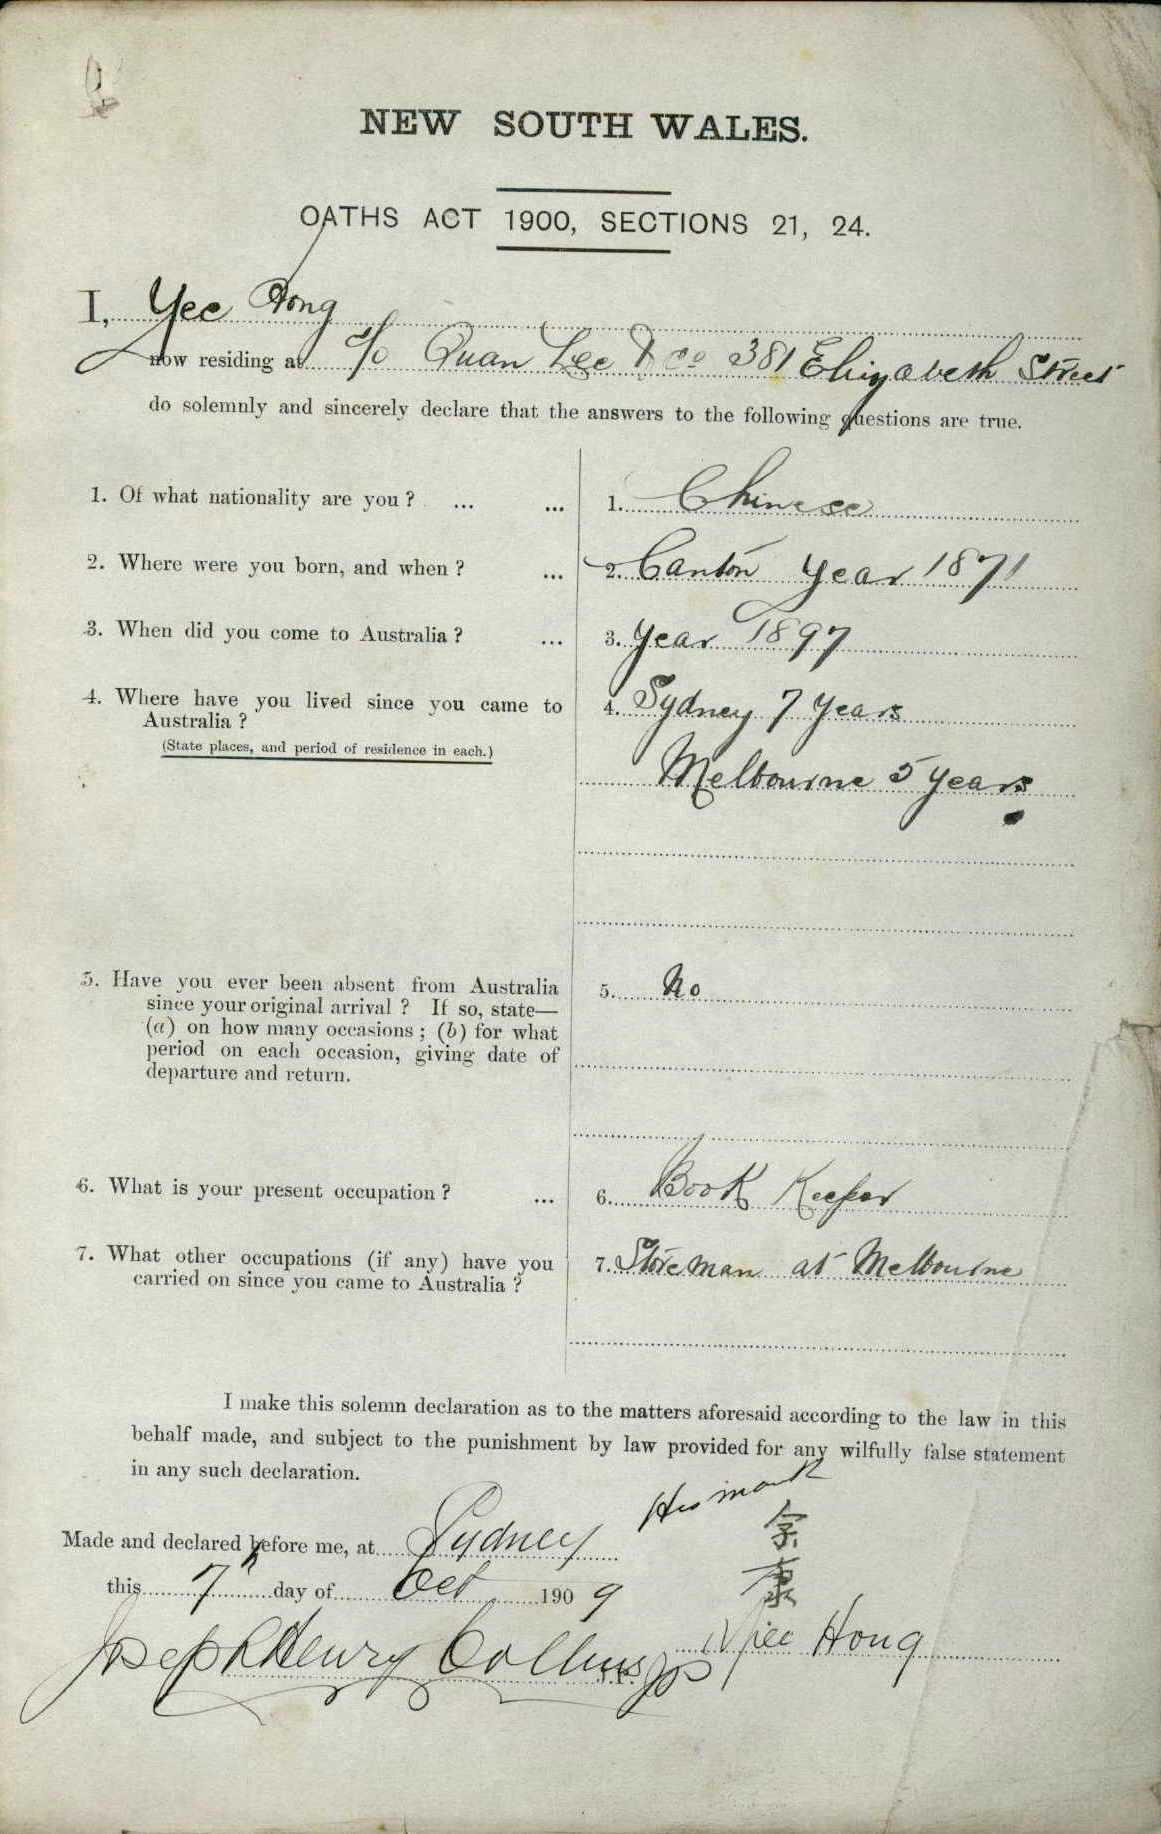 NEW SOUTH WALES.
OATHS ACT 1900, SECTIONS 21, 24.
I, Yee Hong
now residing at c/o Quan Lee & Co 381 Elizabeth Street
do solemnly and sincerely declare that the answers to the following questions are true.
1. Of what nationality are you? ... ... 1. Chinese
2. Where were you born, and when? ... 2. Canton year 1871
3. When did you come to Australia? ... 3. year 1897
4. Where have you lived since you came to 4. Sydney 7 years
Australia?
(State places, and period of residence in each.)
Melbourne 5 years
5. Have you ever been absent from Australia 5. No
since your original arrival? If so, state—
(a) on how many occasions; (b) for what
period on each occasion, giving date of
departure and return.
6. What is your present occupation? ... 6. Book Keeper
7. What other occupations (if any) have you 7. Storeman at Melbourne
carried on since you came to Australia?
I make this solemn declaration as to the matters aforesaid according to the law in this
behalf made, and subject to the punishment by law provided for any wilfully false statement
in any such declaration.
His mark
Made and declared before me, at Sydney 余
this 7th day of Oct 1909 康
Joseph Henry Collins JP Hong